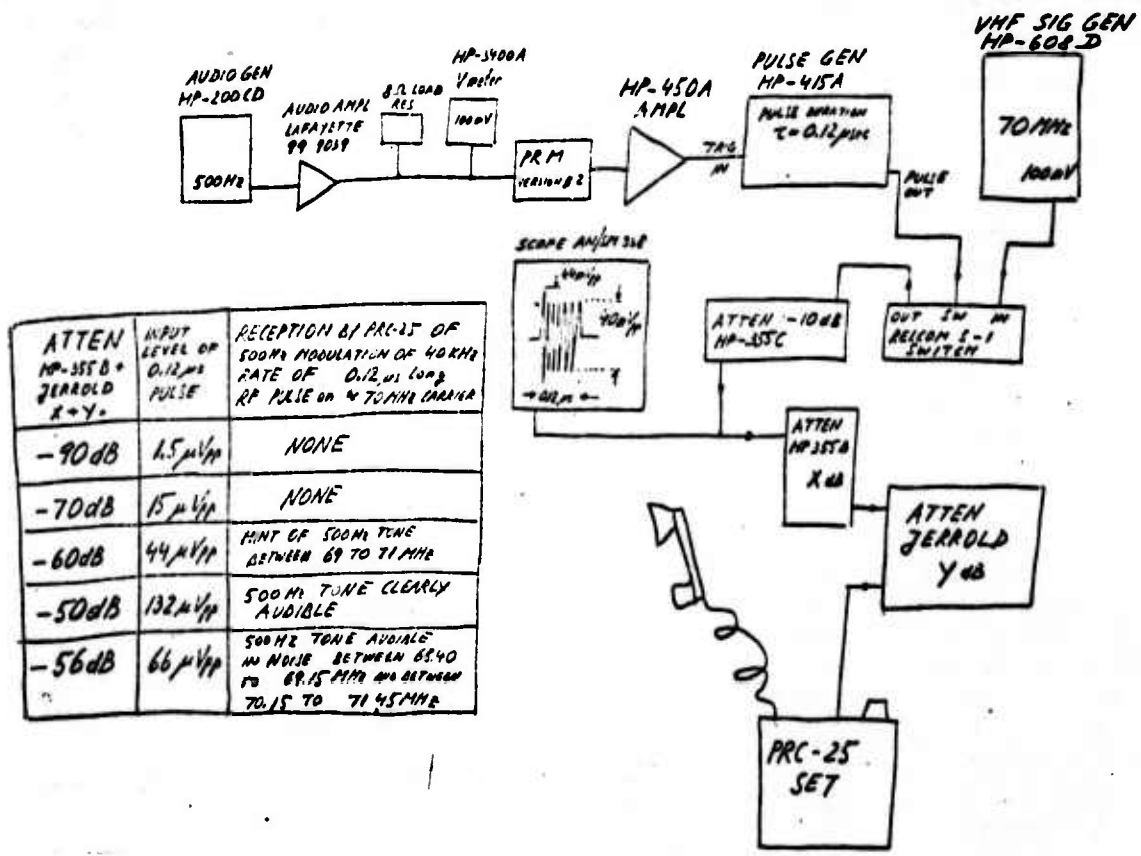 VHF SIG GEN
HP-608D
70MHz
100mV
AUDIO GEN
HP-200CD
500Hz
AUDIO AMPL
LAFAYETTE
99 9039
8Ω LOAD
RES
HP-3400A
Vmeter
100mV
PRM
VERSION B2
HP-450A
AMPL
TRIG
IN
PULSE GEN
HP-415A
PULSE DURATION
τ=0.12μsec
PULSE
OUT
SCOPE
44mVpp
40mVpp
0.12μs
ATTEN -10dB
HP-355C
OUT SW IN
RELCOM S-1
SWITCH
ATTEN
HP355D
X dB
ATTEN
JERROLD
Y dB
PRC-25
SET
ATTEN
HP-355D +
JERROLD
X+Y.
INPUT
LEVEL OF
0.12μs
PULSE
RECEPTION BY PRC-25 OF
500Hz MODULATION OF 40KHz
RATE OF 0.12μs Long
RF PULSE on 70MHz CARRIER
-90dB
1.5μVpp
NONE
-70dB
15μVpp
NONE
-60dB
44μVpp
HINT OF 500Hz TONE
BETWEEN 69 TO 71 MHz
-50dB
132μVpp
500Hz TONE CLEARLY
AUDIBLE
-56dB
66μVpp
500HZ TONE AUDIBLE
IN NOISE BETWEEN
TO 69.15MHz AND BETWEEN
70.15 TO 71.45MHz